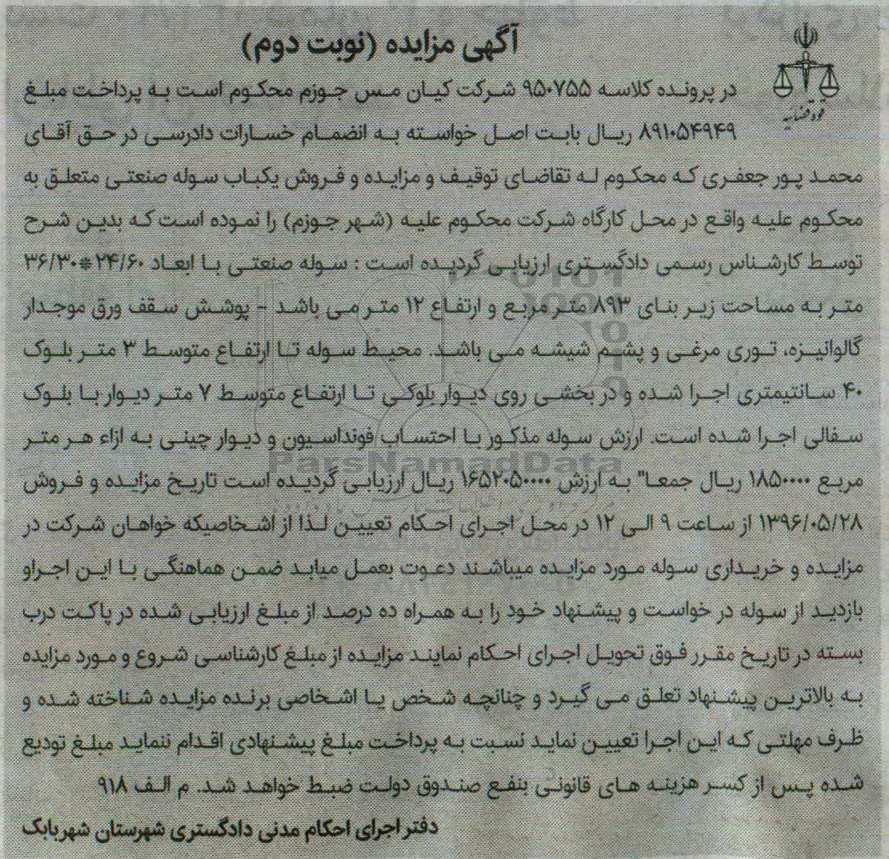 آگهی مزایده (نوبت دوم)
قوه قضائیه
در پرونده کلاسه ۹۵۰۷۵۵ شرکت کیان مس جوزم محکوم است به پرداخت مبلغ
۸۹۱۰۵۴۹۴۹ ریال بابت اصل خواسته به انضمام خسارات دادرسی در حق آقای
محمد پور جعفری که محکوم له تقاضای توقیف و مزایده و فروش یکباب سوله صنعتی متعلق به
محکوم علیه واقع در محل کارگاه شرکت محکوم علیه (شهر جوزم) را نموده است که بدین شرح
توسط کارشناس رسمی دادگستری ارزیابی گردیده است : سوله صنعتی با ابعاد ۲۴/۶۰*۳۶/۳۰
متر به مساحت زیر بنای ۸۹۳ متر مربع و ارتفاع ۱۲ متر می باشد - پوشش سقف ورق موجدار
گالوانیزه، توری مرغی و پشم شیشه می باشد. محیط سوله تا ارتفاع متوسط ۳ متر بلوک
۴۰ سانتیمتری اجرا شده و در بخشی روی دیوار بلوکی تا ارتفاع متوسط ۷ متر دیوار با بلوک
سفالی اجرا شده است. ارزش سوله مذکور با احتساب فونداسیون و دیوار چینی به ازاء هر متر
مربع ۱۸۵۰۰۰۰ ریال جمعا" به ارزش ۱۶۵۲۰۵۰۰۰۰ ریال ارزیابی گردیده است تاریخ مزایده و فروش
۱۳۹۶/۰۵/۲۸ از ساعت ۹ الی ۱۲ در محل اجرای احکام تعیین لذا از اشخاصیکه خواهان شرکت در
مزایده و خریداری سوله مورد مزایده میباشند دعوت بعمل میابد ضمن هماهنگی با این اجراو
بازدید از سوله در خواست و پیشنهاد خود را به همراه ده درصد از مبلغ ارزیابی شده در پاکت درب
بسته در تاریخ مقرر فوق تحویل اجرای احکام نمایند مزایده از مبلغ کارشناسی شروع و مورد مزایده
به بالاترین پیشنهاد تعلق می گیرد و چنانچه شخص یا اشخاصی برنده مزایده شناخته شده و
ظرف مهلتی که این اجرا تعیین نماید نسبت به پرداخت مبلغ پیشنهادی اقدام ننماید مبلغ تودیع
شده پس از کسر هزینه های قانونی بنفع صندوق دولت ضبط خواهد شد. م الف ۹۱۸
دفتر اجرای احکام مدنی دادگستری شهرستان شهربابک
ParsNamadData